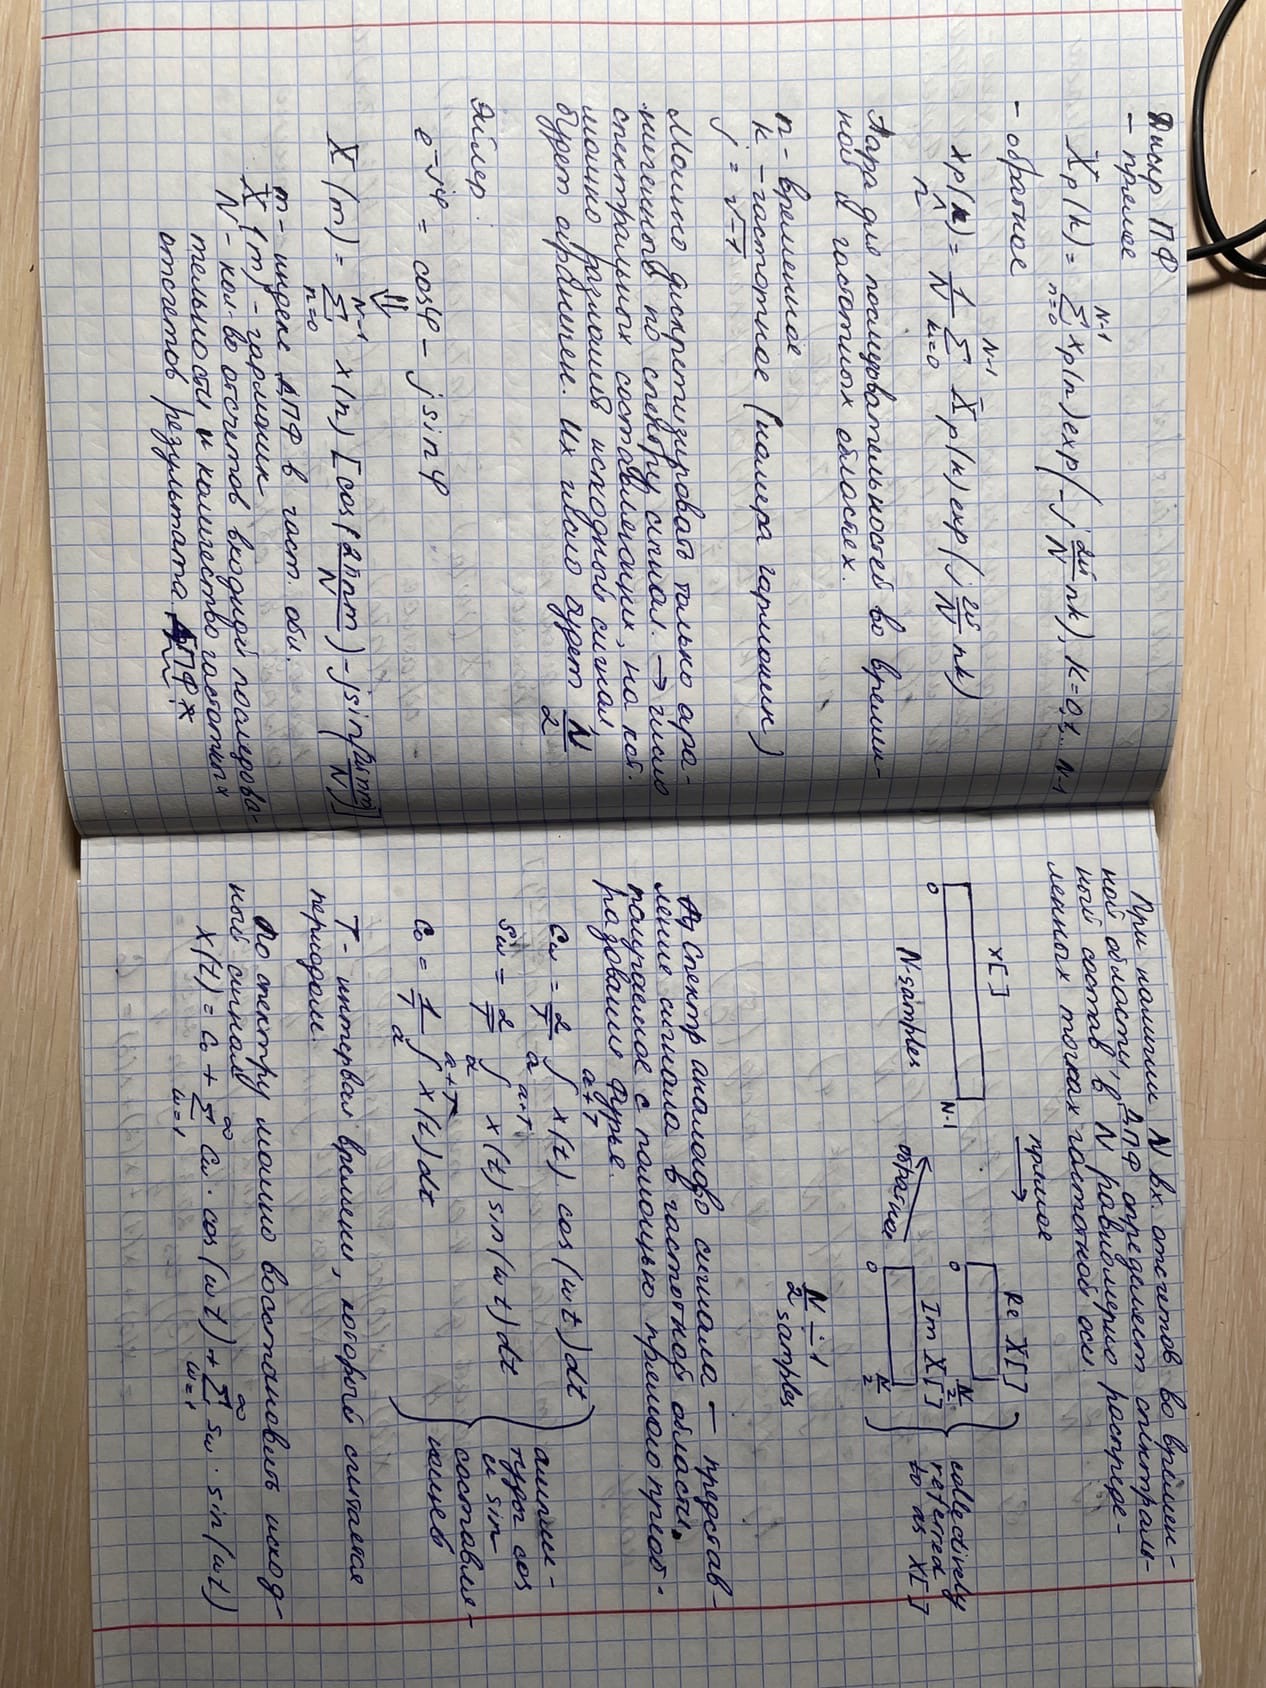 Дискр ПФ
- прямое
X̄p(k) = N-1 ∑ n=0 xp(n) exp(-j 2π/N nk), k=0,1,.. N-1
- обратное
xp(n) = 1/N N-1 ∑ k=0 X̄p(k) exp(j 2π/N nk)
n
Пара для последовательностей во времен-
ной и частотных областях.
n - временное
k - частотное (номера гармоник)
j = √-1
Можно дискретизировать только огра-
ниченный по спектру сигнал. → число
спектральных составляющих, на кот.
можно разложить исходный сигнал,
будет ограничен. Их число будет N/2
Эйлер
e^-jφ = cosφ - j sinφ
⇓
X(m) = N-1 ∑ n=0 x(n) [cos(2πnm/N) - j sin(2πnm/N)]
m - индекс ДПФ в част. обл.
X(m) - гармоник
N - кол-во отсчетов входной последова-
тельности и количество частотных
отсчетов результата ДПФ*
При наличии N вх. отсчетов во времен-
ной области, ДПФ определяет спектраль-
ный состав в N равномерно распреде-
ленных точках частотной оси
прямое →
x[ ]
0 N-1
N-samples
обратное ←
Re X[ ]
0 N/2
Im X[ ]
0 N/2
collectively
referred
to as X[ ]
N/2 - 1
samples
Спектр аналогово сигнала - представ-
ление сигнала в частотной области.
получаемое с помощью прямого преоб-
разования Фурье.
Cω = 2/T a+T ∫ a x(t) cos(ωt)dt
Sω = 2/T a+T ∫ a x(t) sin(ωt)dt
C₀ = 1/T a+T ∫ a x(t)dt
ампли-
туды cos
и sin
составля-
ющей
T - интервал времени, который считается
периодом.
По спектру можно восстановить исход-
ный сигнал
x(t) = C₀ + ∞ ∑ ω=1 Cω · cos(ωt) + ∞ ∑ ω=1 Sω · sin(ωt)